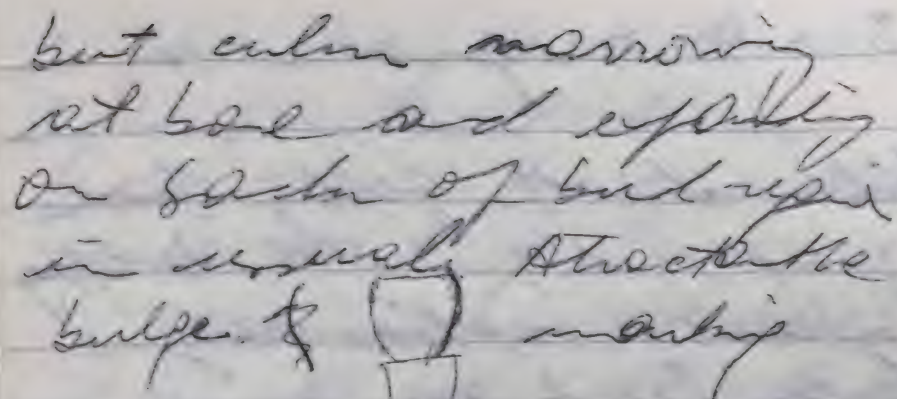 but culm narrowing
at base and expanding
on back of bud region
in usual Atractantha
bulge. marking